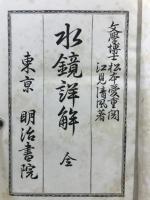 文學博士 松本愛重閲
江見清風著
水鏡詳解 全
東京 明治書院